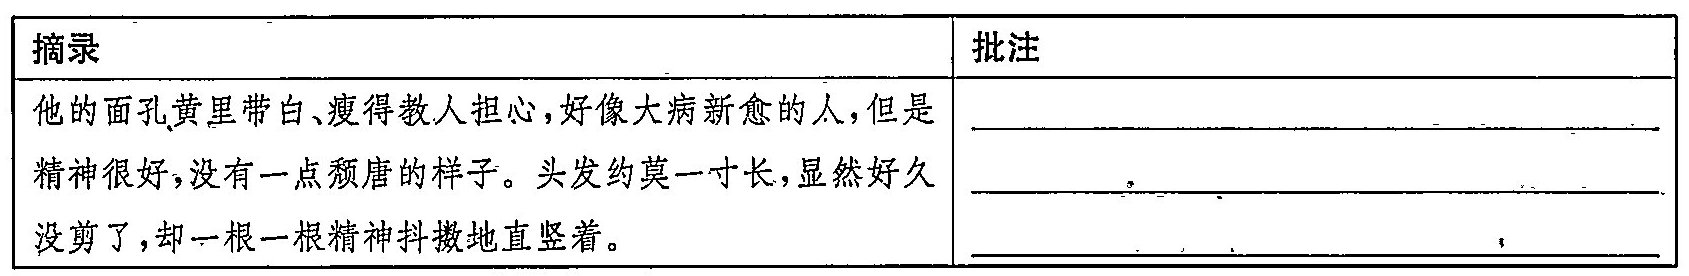 摘录
批注
他的面孔黄里带白、瘦得教人担心,好像大病新愈的人,但是
精神很好,没有一点颓唐的样子。头发约莫一寸长,显然好久
没剪了,却一根一根精神抖擞地直竖着。